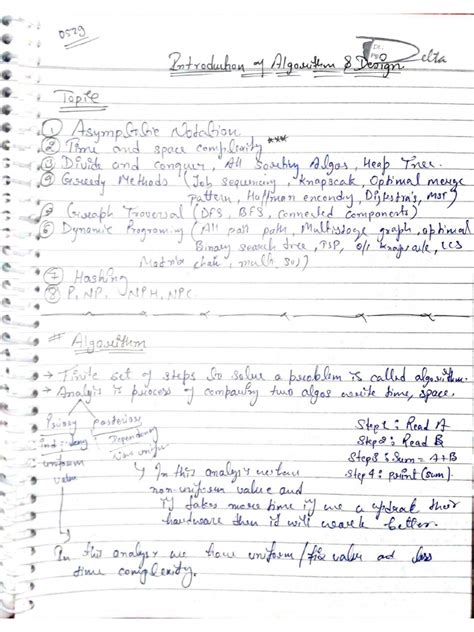 0529
Introduction of Algorithm & Design
Delta
Topic
① Asymptotic Notation
② Time and space complexity ***
③ Divide and conquer, All Sorting Algos, Heap Tree.
④ Greedy Methods (Job sequency, Knapscak, Optimal merge
Pattern, Huffman encondy, Dijkstra's, MST)
⑤ Graph Traversal (DFS, BFS, Connected components)
⑥ Dynamic Programing (All pair path, Multistage graph, optimal
Binary search tree, TSP, 0/1 knapsack, LCS
Matrix chain, multi, SOS)
⑦ Hashing
⑧ P, NP, NPH, NPC.
# Algorithm
→ Finite set of steps to solve a problem is called algorithm.
→ Analysis is process of comparing two algos write time, space.
Priory posteriors
Dependency
Non uniform
uniform
value
Step 1 : Read A
Step 2 : Read B
Step 3 : Sum = A+B
Step 4 : print (sum)
↳ In this analysis
non-uniform value and
if takes more time if we a their
hardware then it will work better.
In this analysis we have uniform / fix value ad less
time complexity.